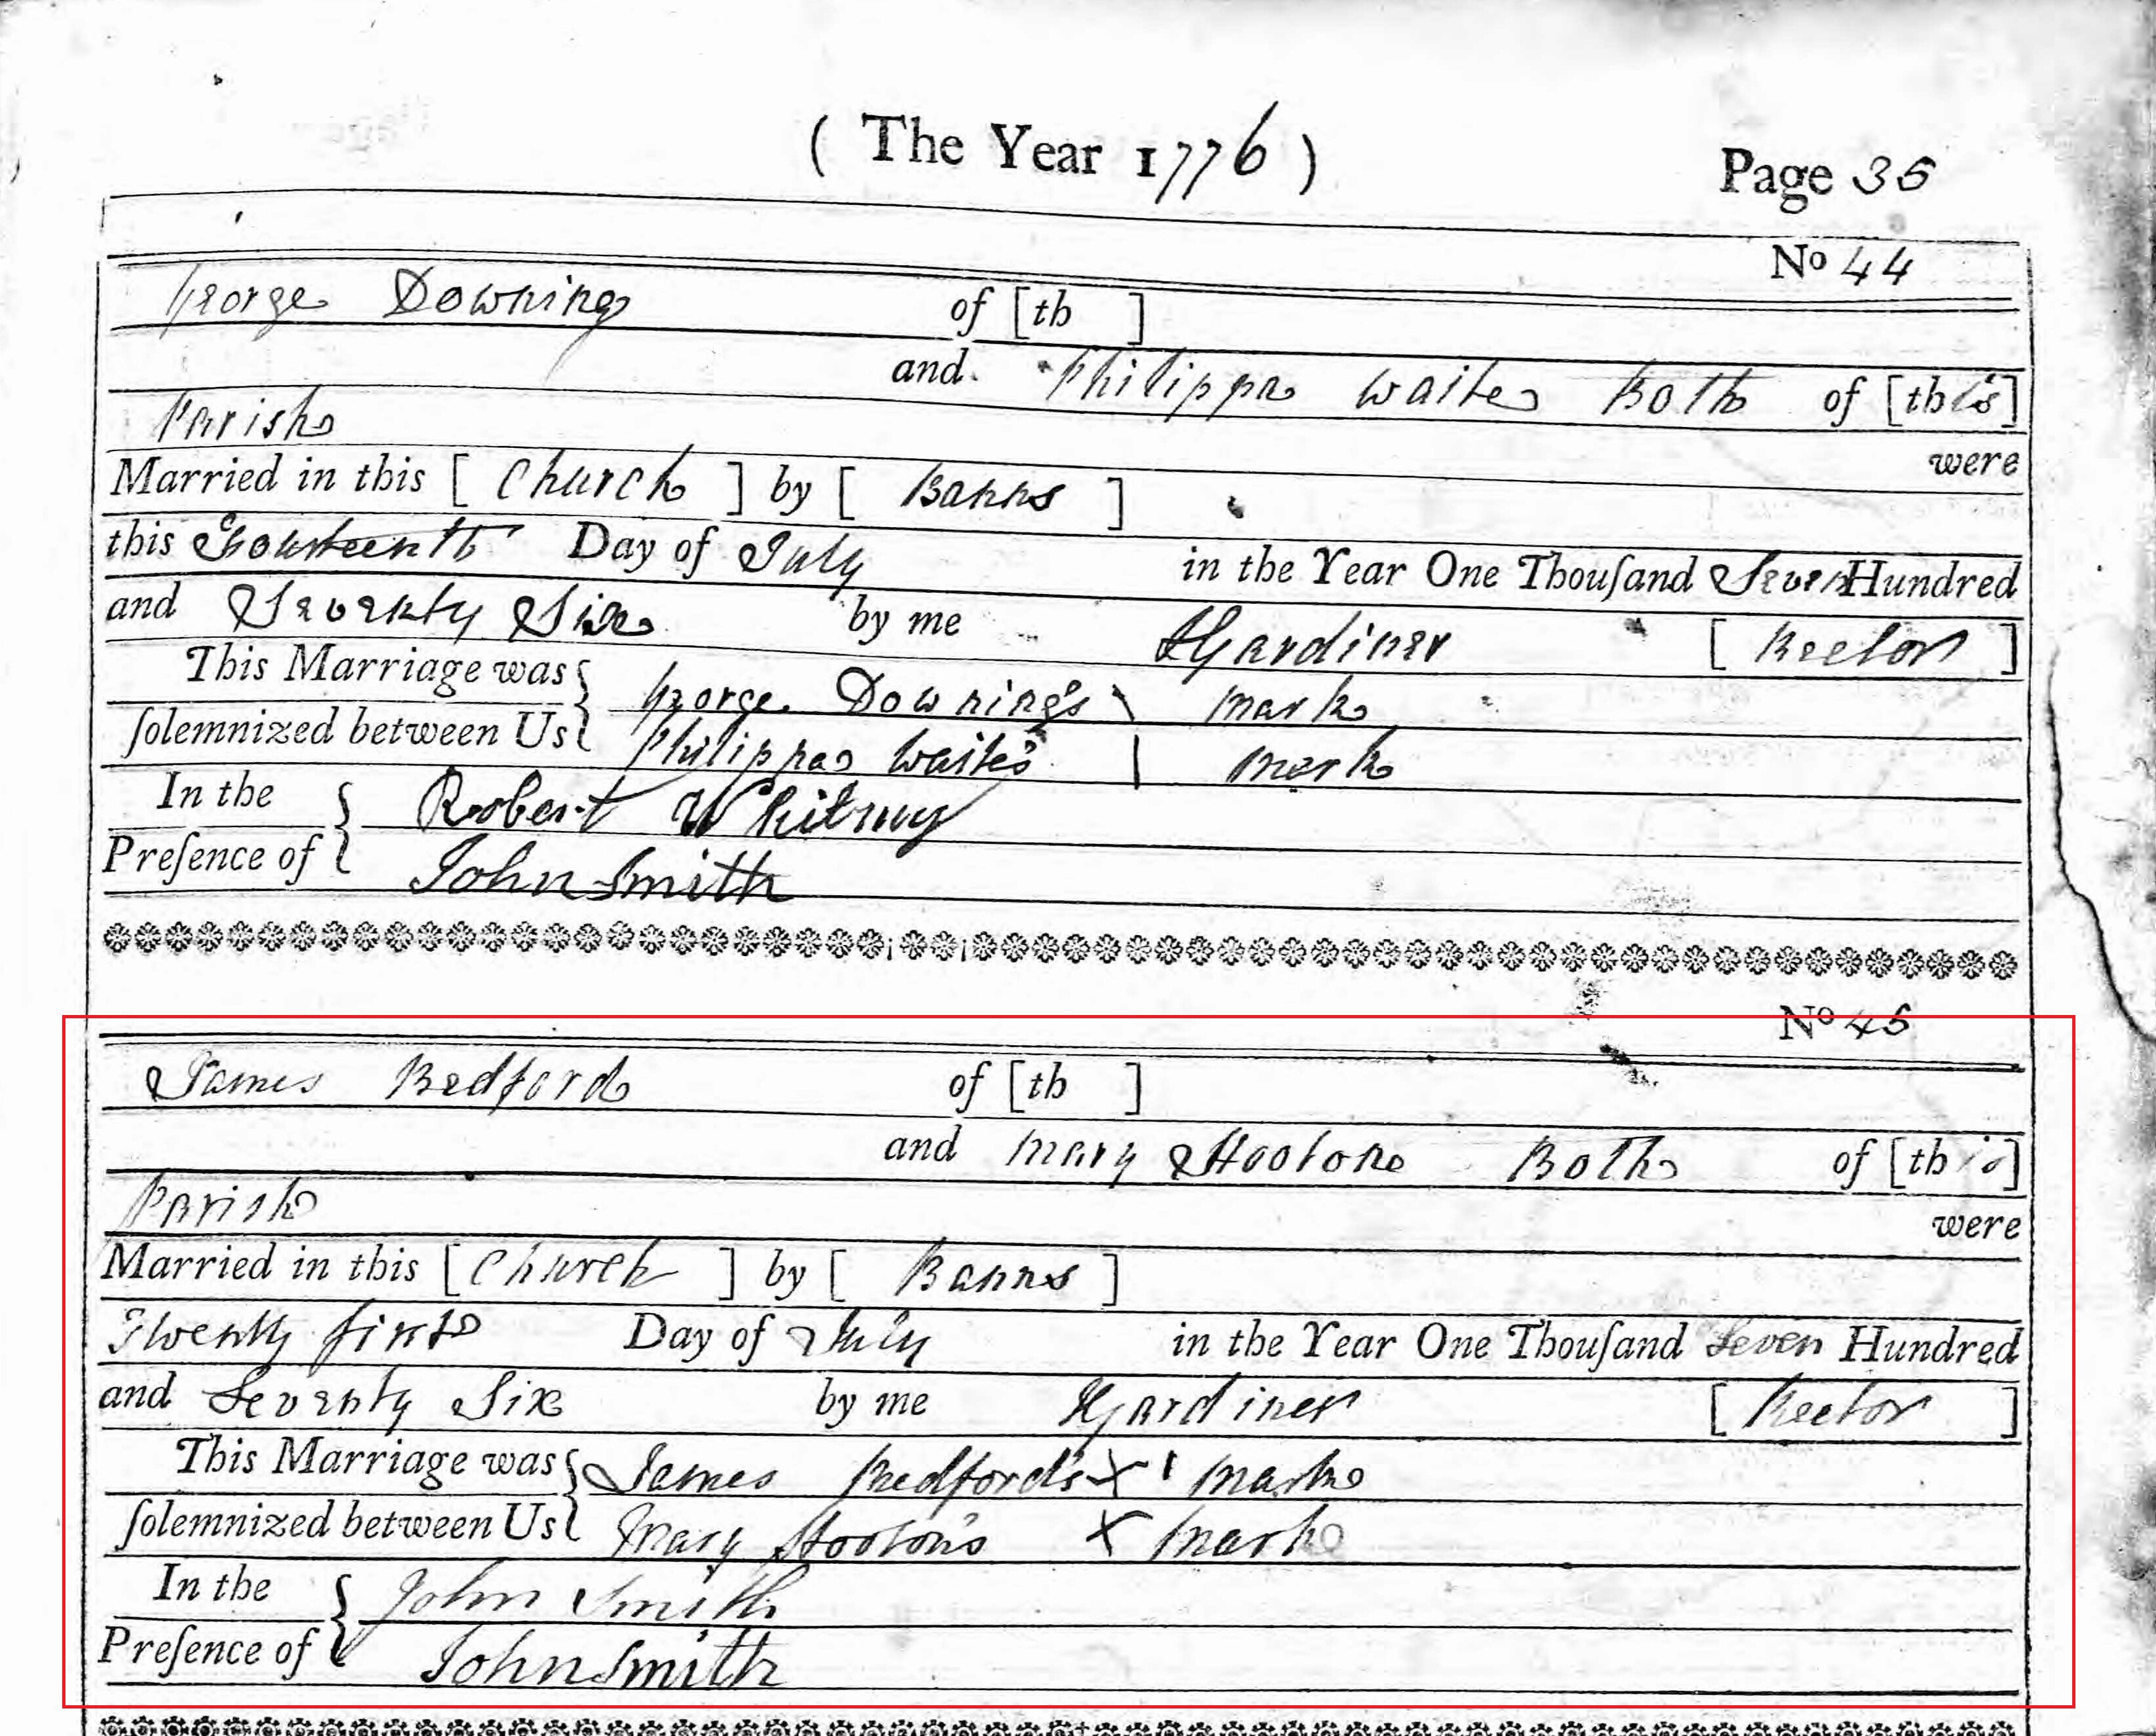 ( The Year 1776 )
Page 35
No 44
George Downing of [th ]
and Philippa Waite Both of [this]
Parish
were
Married in this [ Church ] by [ Banns ]
this Fourteenth Day of July in the Year One Thouſand Seven Hundred
and Seventy Six by me HGardiner [ Rector ]
This Marriage was { George Downing's \ mark
ſolemnized between Us { Philippa Waite's | mark
In the { Robert Whitmy
Preſence of { John Smith
No 45
James Bedford of [th ]
and Mary Hooton Both of [this]
Parish
were
Married in this [ Church ] by [ Banns ]
Twenty first Day of July in the Year One Thouſand Seven Hundred
and Seventy Six by me HGardiner [ Rector ]
This Marriage was { James Bedford's X mark
ſolemnized between Us { Mary Hooton's X mark
In the { John Smith
Preſence of { John Smith